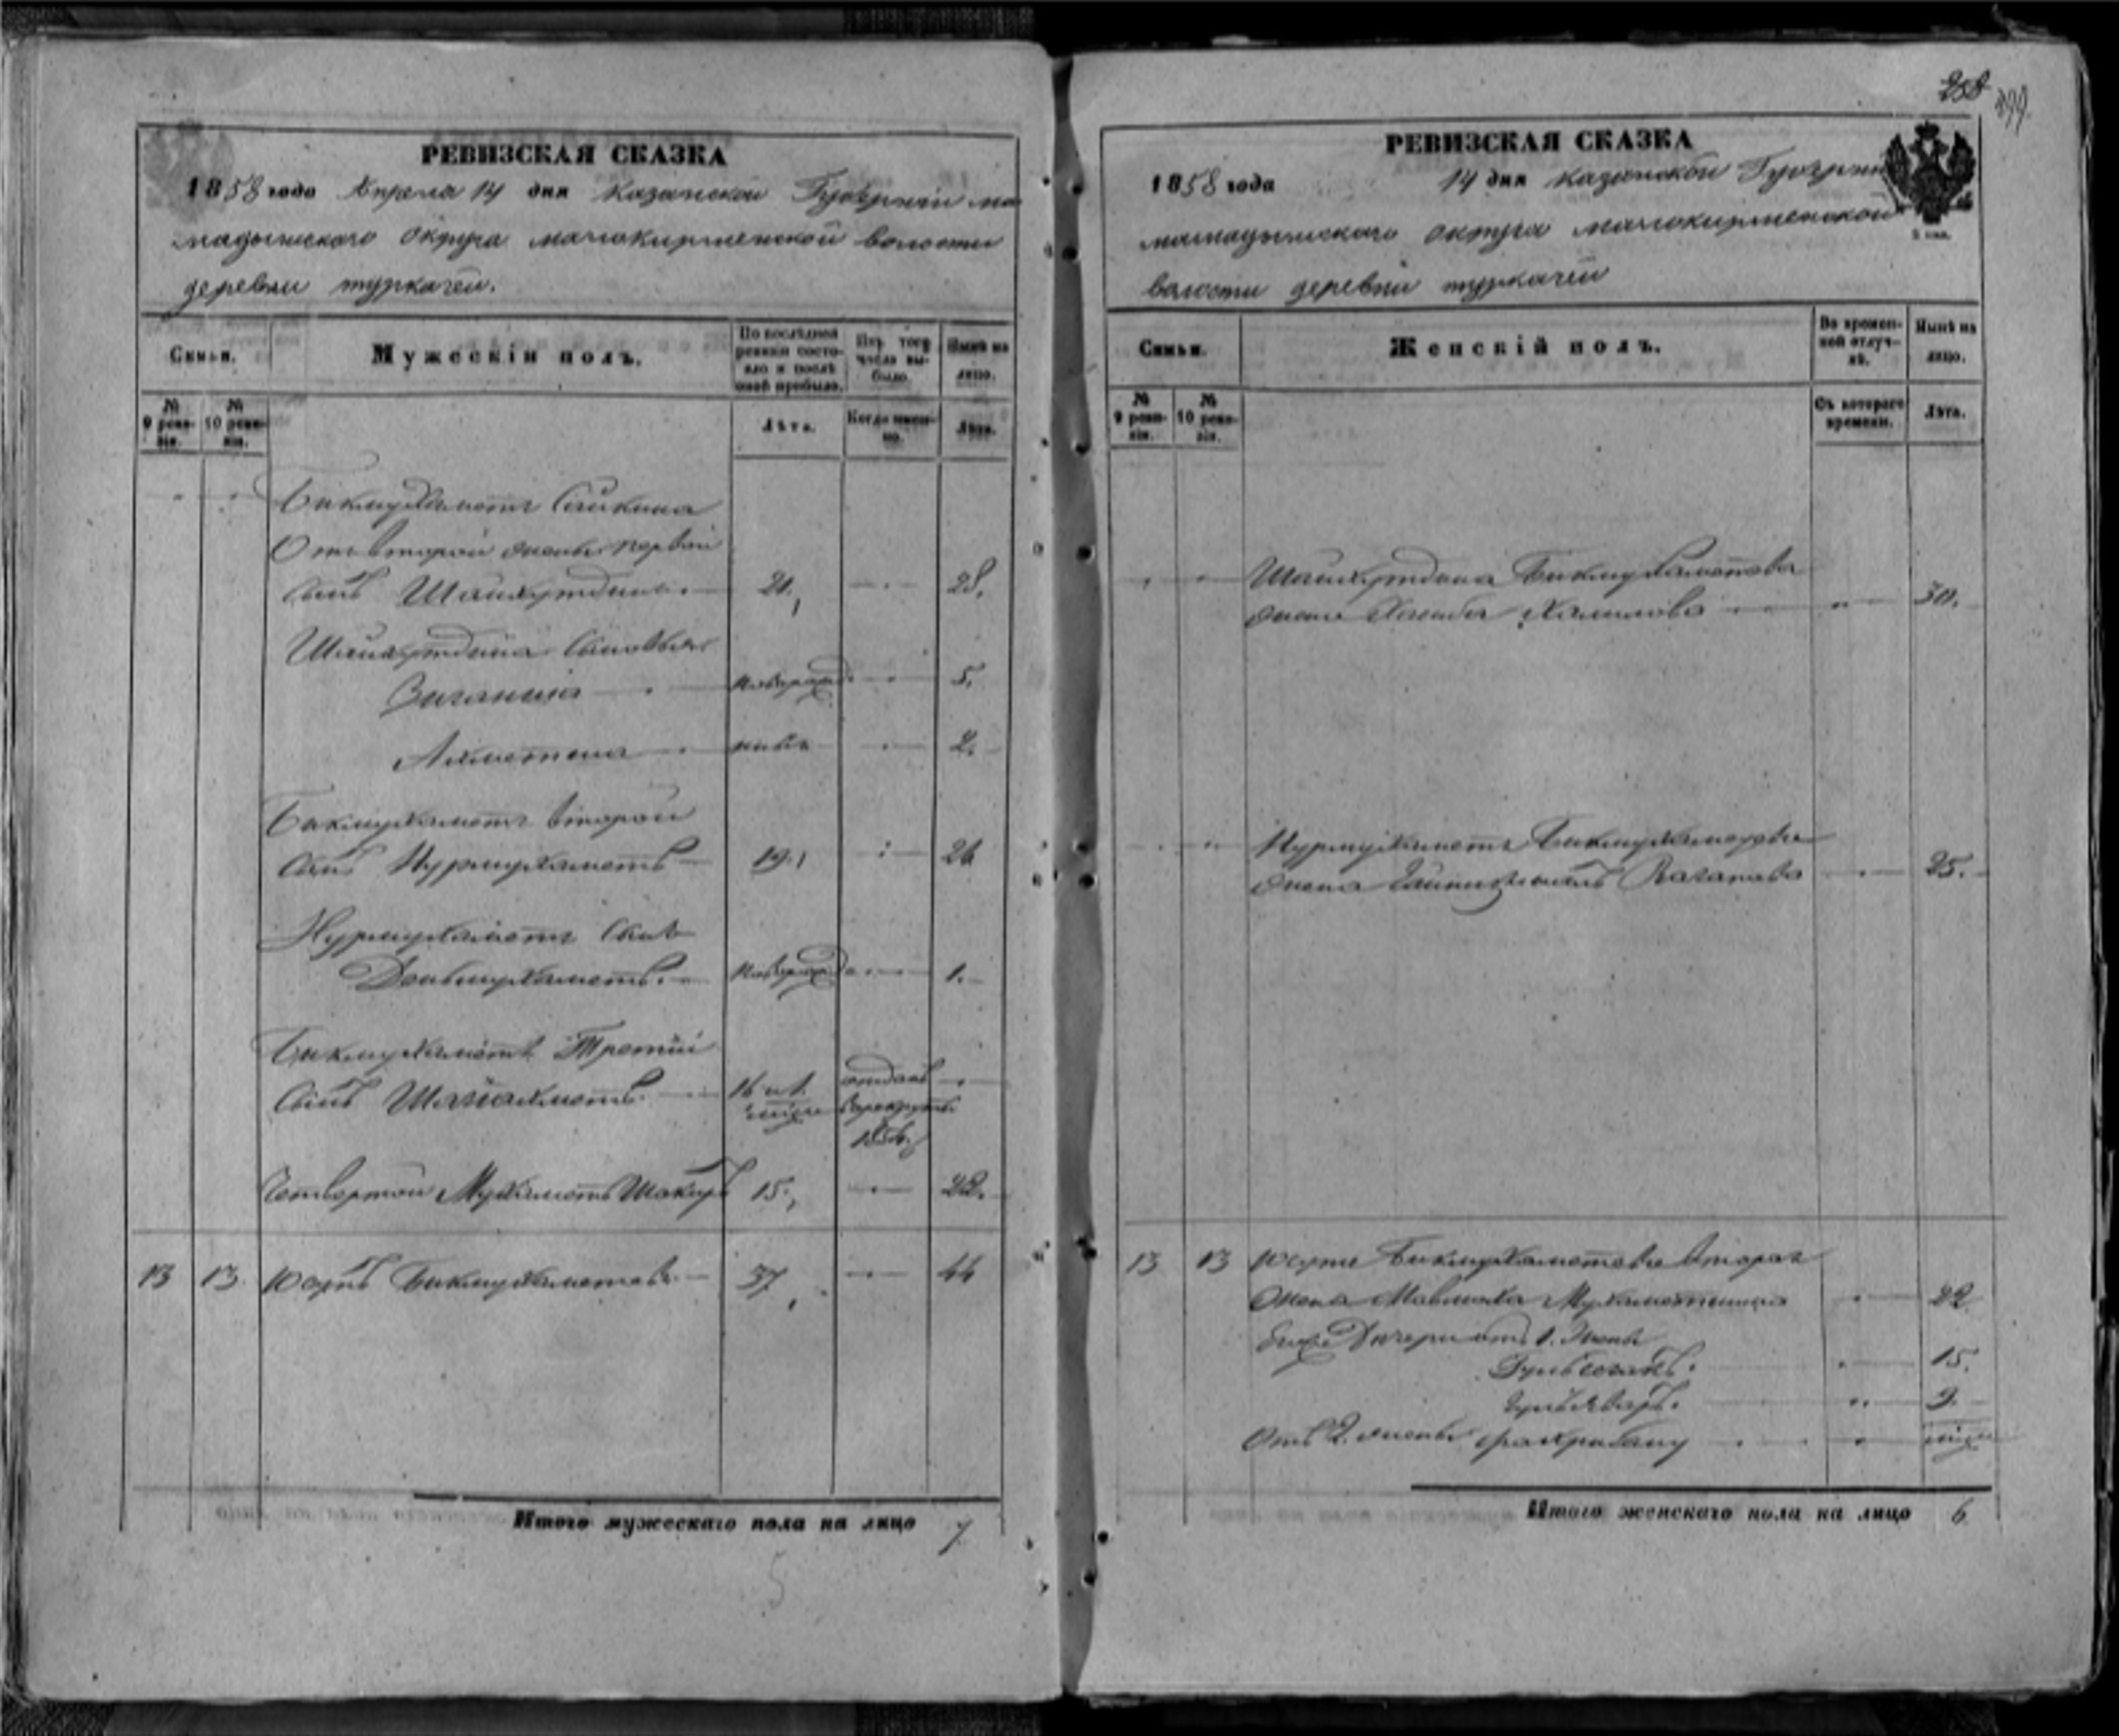 258
399
РЕВИЗСКАЯ СКАЗКА
1858 года Апреля 14 дня Казанской Губернии ма
мадышскаго округа малокирменской волости
деревни туркачей.
Семьи.
Мужескій полъ.
По послѣдней ревизіи состояло и послѣ оной прибыло.
Изъ того числа выбыло.
Нынѣ на лицо.
№ 9 ревизіи.
№ 10 ревизіи.
Лѣта.
Когда именно.
Лѣта.
Бикмухаметя Сеикина
От второй жены первой
сынъ Шаихутдинъ 21, 28.
Шаихутдина сыновья
Зиганша новорожд 5.
Ахметша новъ 2.
Бикмухаметя второй
сынъ Нурмухаметъ 19, 26
Нурмухаметя сынъ
Девмухаметъ. новорожд 1.
Бикмухаметя Третій
сынъ Шаиахметъ. 16 отданъ
в рекруты
185
Четвертой МухаметъШакиръ 15, 22.
13 13 Юсупъ Бикмухаметовъ 37, 44
Итого мужескаго пола на лицо 7
5
РЕВИЗСКАЯ СКАЗКА
1858 года 14 дня казанской Губерніи
мамадышскаго округа малокирменской
волости деревни туркачей
Семьи.
Женскій полъ.
Во временной отлучкѣ.
Нынѣ на лицо.
№ 9 ревизіи.
№ 10 ревизіи.
Съ котораго времени.
Лѣта.
Шаихутдина Бикмухаметова
жена Хабиба Халилова 30.
Нурмухаметя Бикмухаметова
жена Рагапова 25.
13 13 Юсупа Бикмухаметова вторая
жена Мавлиха Мухаметшина 22
Ево Дочери от 1. жены
15.
Гульяваръ. 9.
Отъ 2. жены Фахрибану
Итого женскаго пола на лицо 6